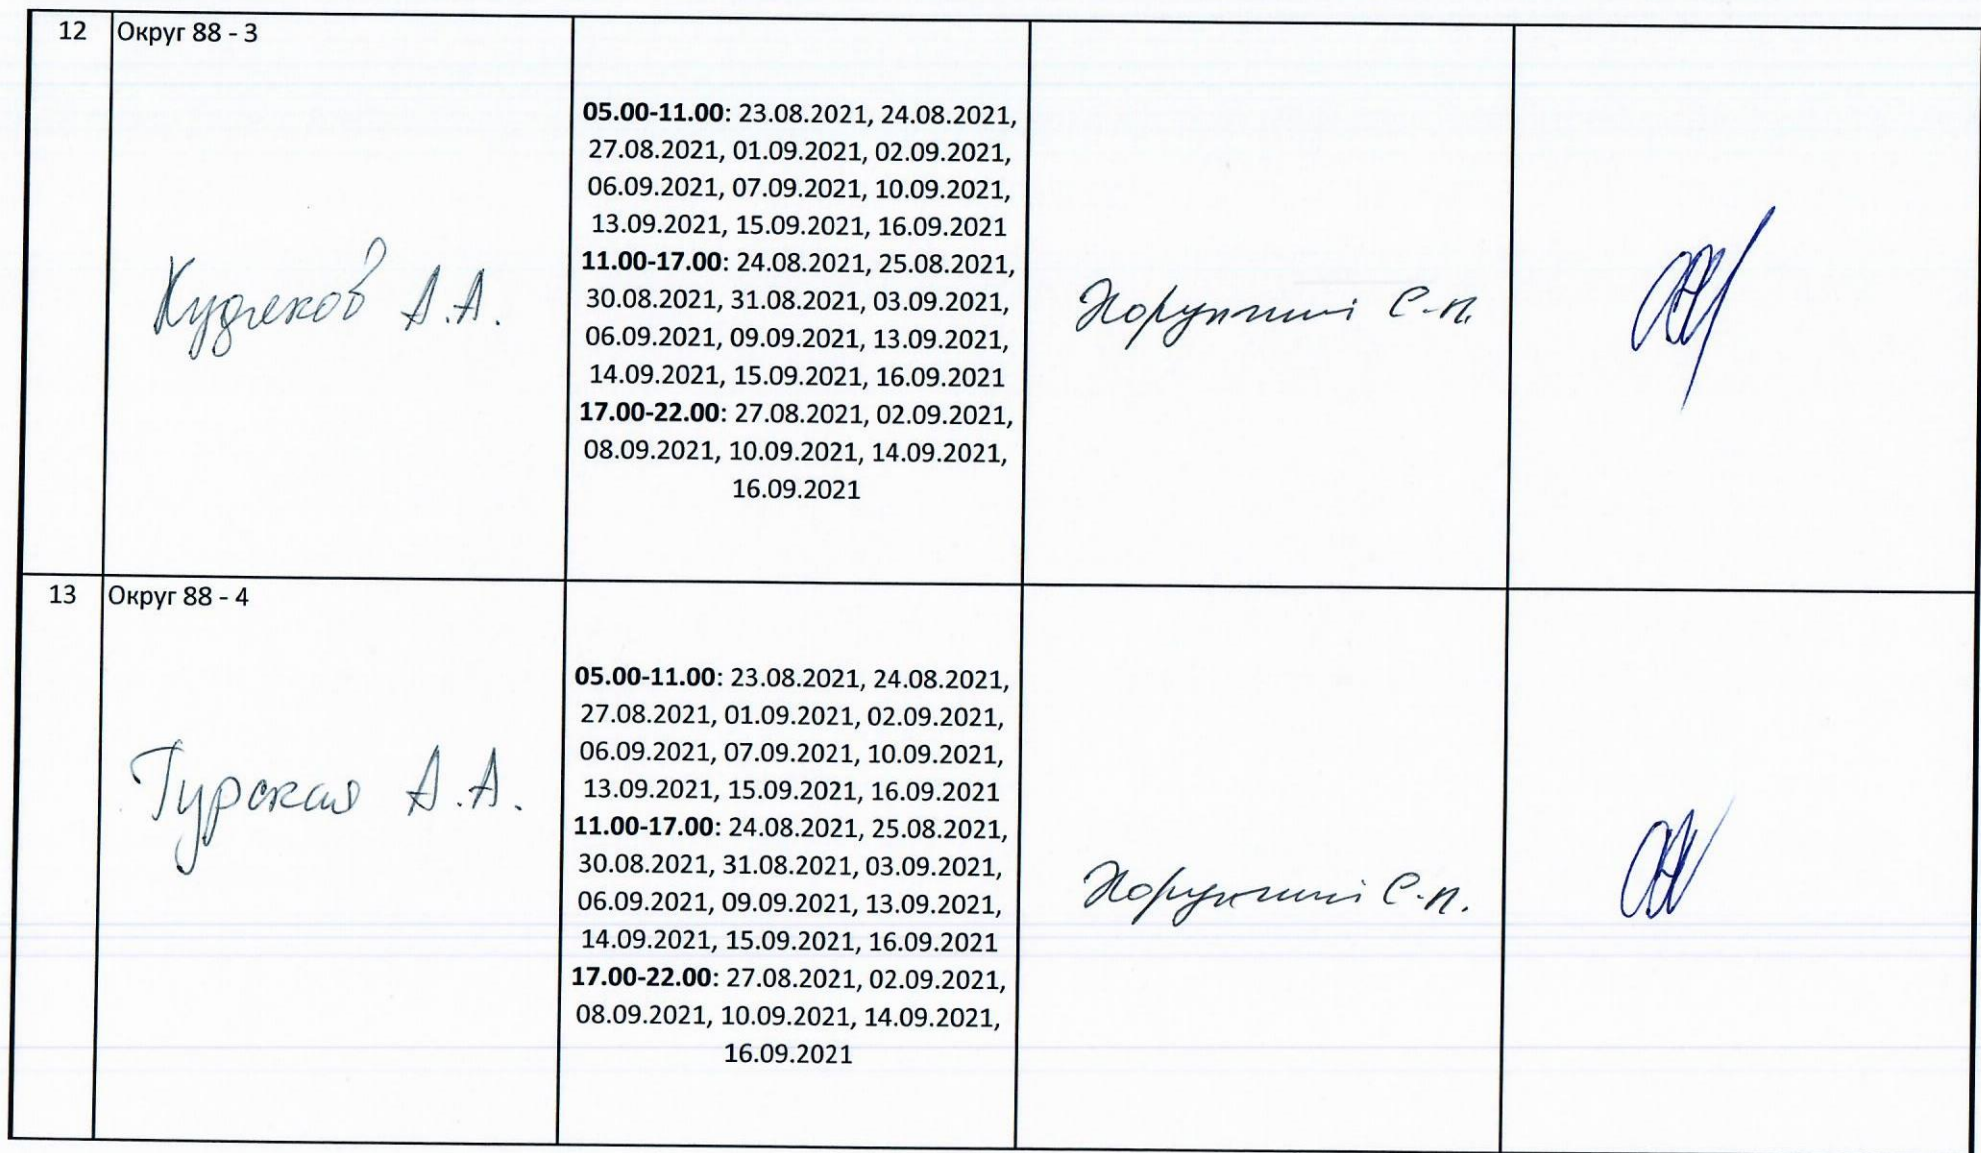 12 Округ 88 - 3
05.00-11.00: 23.08.2021, 24.08.2021,
27.08.2021, 01.09.2021, 02.09.2021,
06.09.2021, 07.09.2021, 10.09.2021,
13.09.2021, 15.09.2021, 16.09.2021
11.00-17.00: 24.08.2021, 25.08.2021,
30.08.2021, 31.08.2021, 03.09.2021,
06.09.2021, 09.09.2021, 13.09.2021,
14.09.2021, 15.09.2021, 16.09.2021
17.00-22.00: 27.08.2021, 02.09.2021,
08.09.2021, 10.09.2021, 14.09.2021,
16.09.2021
А.А.
С.П.
13 Округ 88 - 4
05.00-11.00: 23.08.2021, 24.08.2021,
27.08.2021, 01.09.2021, 02.09.2021,
06.09.2021, 07.09.2021, 10.09.2021,
13.09.2021, 15.09.2021, 16.09.2021
11.00-17.00: 24.08.2021, 25.08.2021,
30.08.2021, 31.08.2021, 03.09.2021,
06.09.2021, 09.09.2021, 13.09.2021,
14.09.2021, 15.09.2021, 16.09.2021
17.00-22.00: 27.08.2021, 02.09.2021,
08.09.2021, 10.09.2021, 14.09.2021,
16.09.2021
Турская А.А.
С.П.